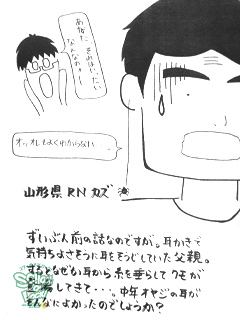 あなた
きのうは、いったい
なんなのォー！
オ、オレもよくわからない
山形県 RN カズ
ずいぶん前の話なのですが。耳かきで
気持ちよさそうに耳をそうじしていた父親。
するとなぜか耳から糸を垂らしてクモが
してきて・・・。中年オヤジの耳が
そんなによかったのでしょうか?